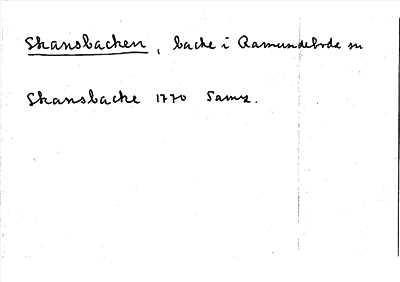 Skansbacken, backe i Ramundeboda sn
Skansbacke 1770